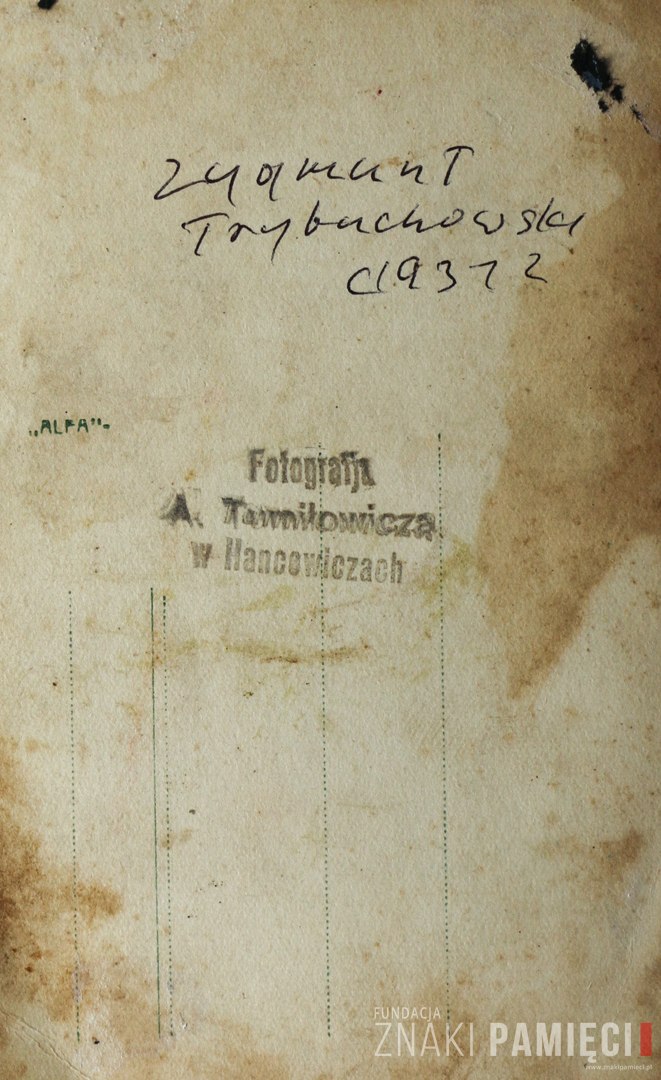 Zygmunt
Trybuchowski
"ALFA"-
Fotografja
A.
w Hancewiczach
FUNDACJA
ZNAKI PAMIĘCI
www.znakipamieci.pl